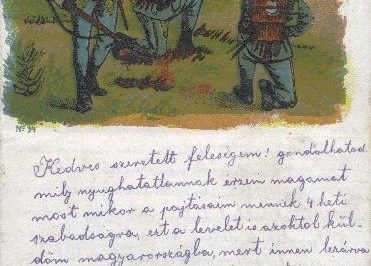 No 34
Kedves szeretett feleségem! gondolhatod
mily nyughatatlannak érzem magamat
most mikor a pajtásaim mennek 4 heti
szabadságra, ezt a levelet is azoktol kül-
döm magyarországba, mert innen lezárva